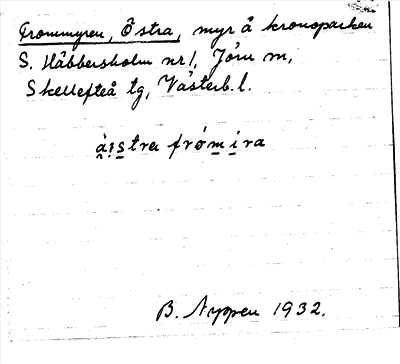 Frommyren, Östra, myr å kronoparken
S. Håbbersholm nr 1, Jörn sn,
Skellefteå tg, Västerb. l.
ä̀i̯stra frömira
B. Nyppen 1932.